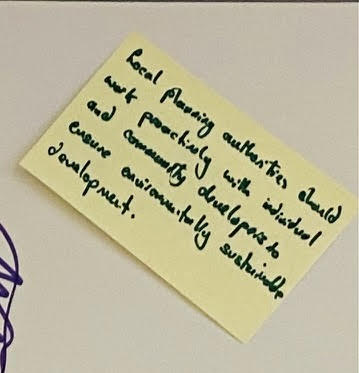 Local planning authorities should
work proactively with individual
and community developers to
ensure environmentally sustainable
development.